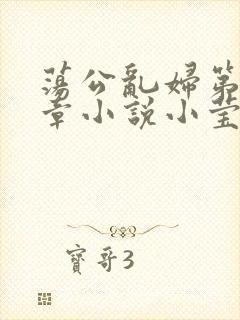 蕩公亂婦第
章小説小莹
寶哥3